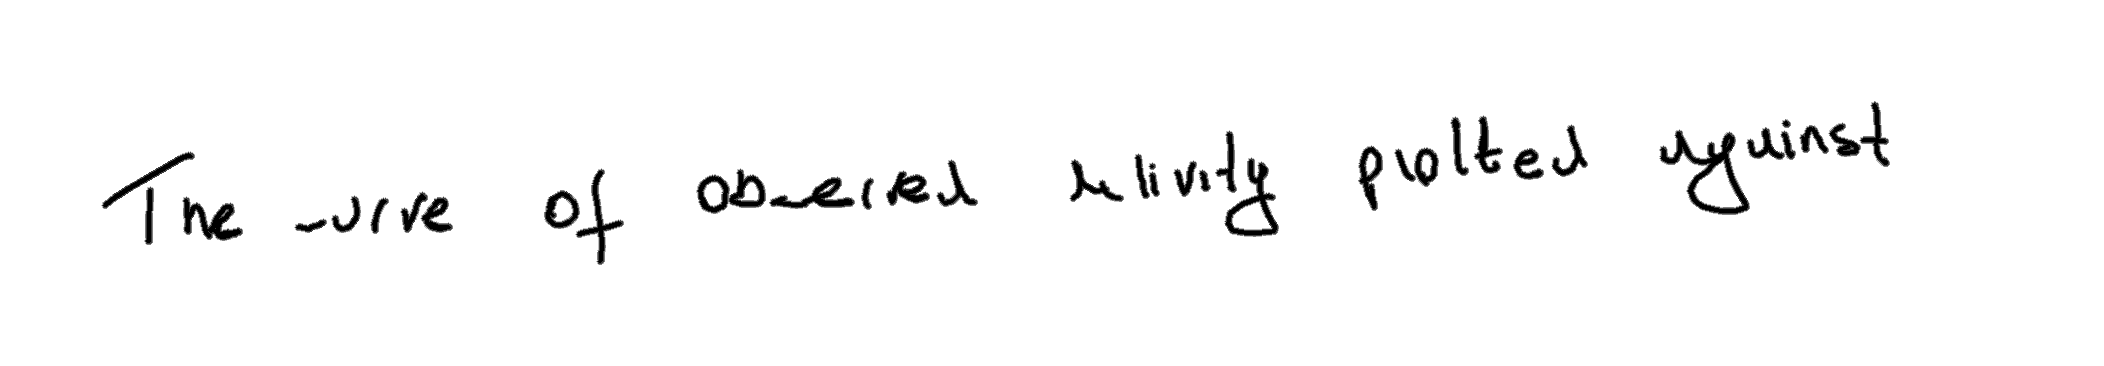 The curve of observed activity plotted against